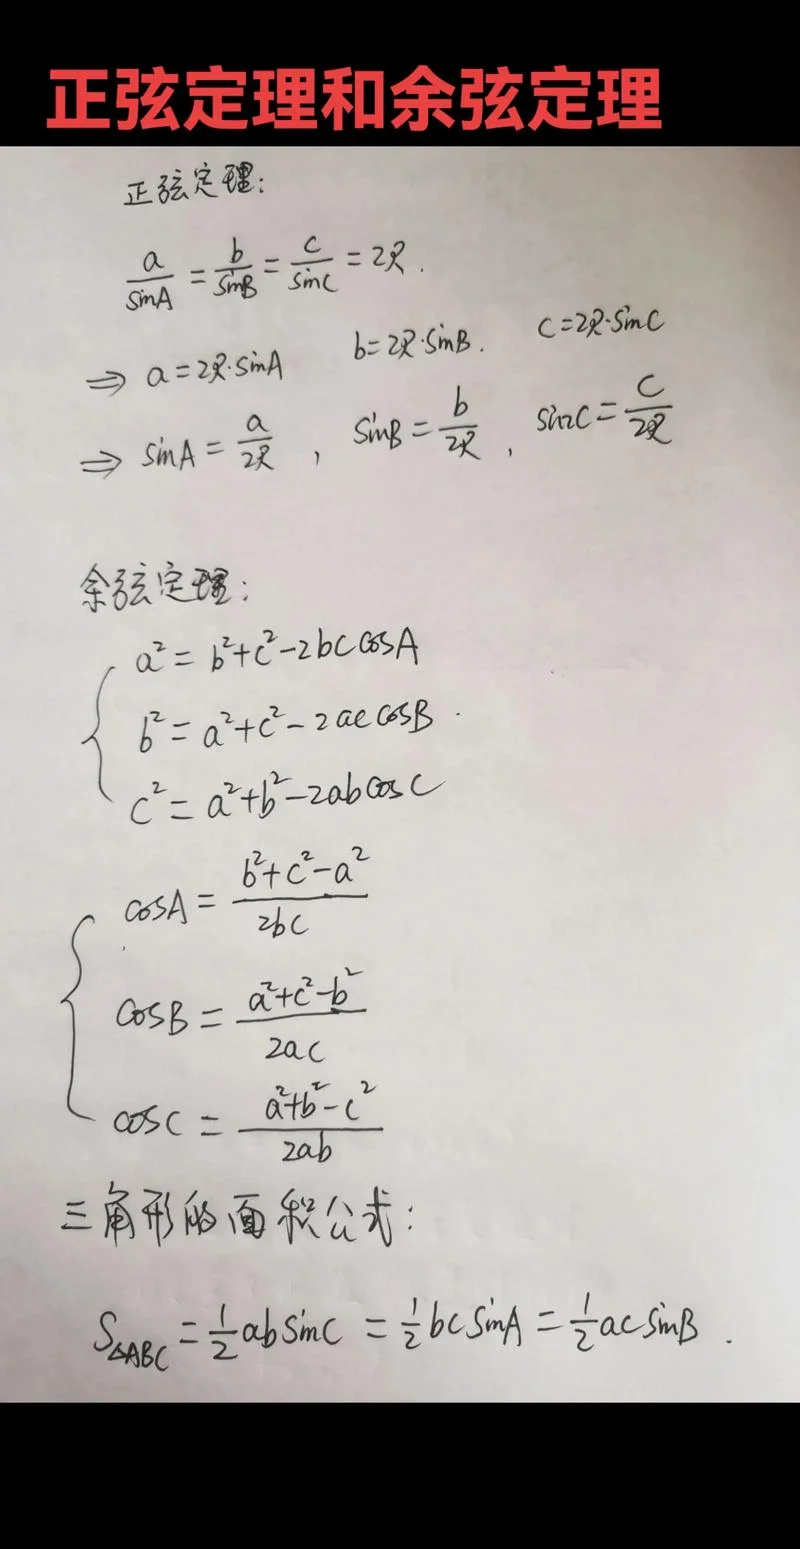 正弦定理和余弦定理
正弦定理:
a/sinA = b/sinB = c/sinC = 2R.
⇒ a=2R·sinA b=2R·sinB. c=2R·sinC
⇒ sinA = a/2R , sinB = b/2R , sinC = c/2R
余弦定理:
a² = b²+c²-2bccosA
b² = a²+c²-2accosB.
c² = a²+b²-2abcosC
cosA = b²+c²-a²/2bc
cosB = a²+c²-b²/2ac
cosC = a²+b²-c²/2ab
三角形的面积公式:
S△ABC = 1/2 absinC = 1/2 bcsinA = 1/2 acsinB.